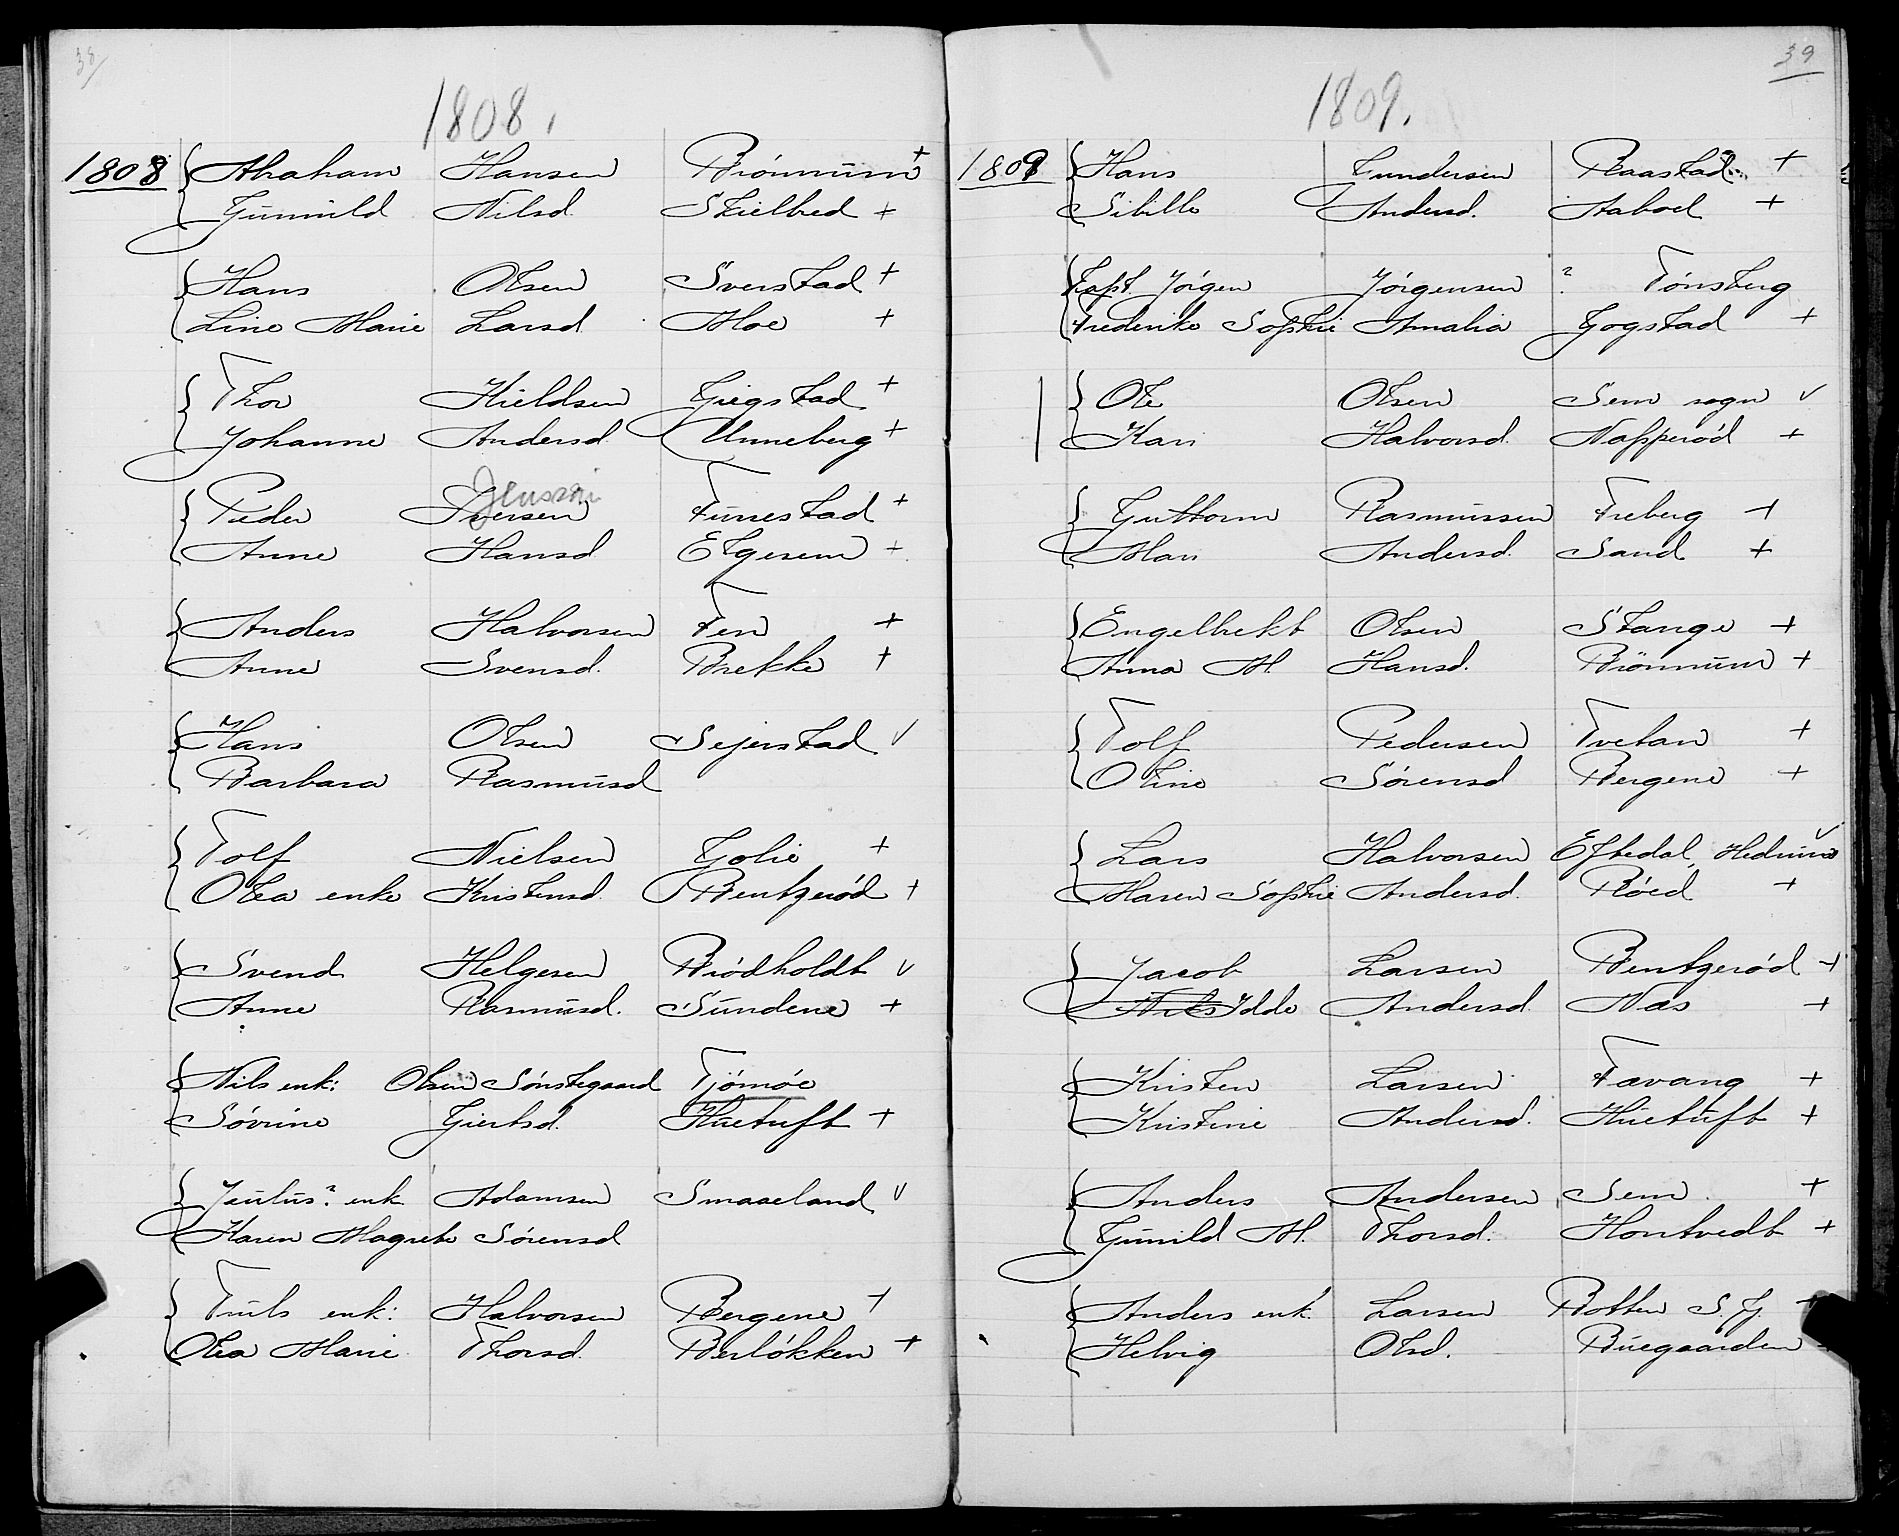 38
1808.
1808 Abraham Hansen Brönnum +
Gunnild Nilsd. Skielbred +
Hans Olsen Sverstad +
Line Marie Larsd. Moe +
Thor Kieldsen Giegstad +
Johanne Andersd. Unneberg +
Jensen
Peder Iversen Furestad +
Anne Hansd Elgesem +
Anders Halvorsen Fen +
Anne Svensd. Brekke +
Hans Olsen Sejerstad v
Barbara Rasmusd
Tolf Nielsen Golie +
Olea enke Kristensd. Bentzeröd +
Svend Helgesen Brödholdt v
Anne Rasmusd. Sundene +
Nils enk: Olsen Sönstegaard Tjömöe
Sörine Giertsd. Huetuft +
Julius? enk Adamsen Smaaeland v
Karen Magrete Sörensd
Truls enk: Halvorsen Bergene +
Olea Marie Thorsd. Berlökken +
39
1809.
1809 Hans Gundersen Raastad... +
Sibille Andersd. Aaboel +
Kapt. Jörgen Jörgensen ? Tönsberg
Frederike Sophie Amalia Gogstad +
Ole Olsen Sem sogn v
Kari Halvorsd. Napperöd +
Guttorm Rasmussen Freberg +
Mari Andersd. Sand +
Engelbrekt Olsen Stange +
Anna M. Hansd. Brönnum +
Tolf Pedersen Tvetan +
Oline Sörensd Bergene +
Lars Halvorsen Eftedal, Hedrum v
Maren Sophie Andersd. Röed +
Jacob Larsen Bentzeröd +
Nils Idde Andersd. Næs +
Kristen Larsen Favang +
Kristine Andersd. Huetuft +
Anders Andersen Sem +
Gunild M. Thorsd. Hontvedt +
Anders enk. Larsen Botten S. J. +
Helvig Olsd. Buegaarden